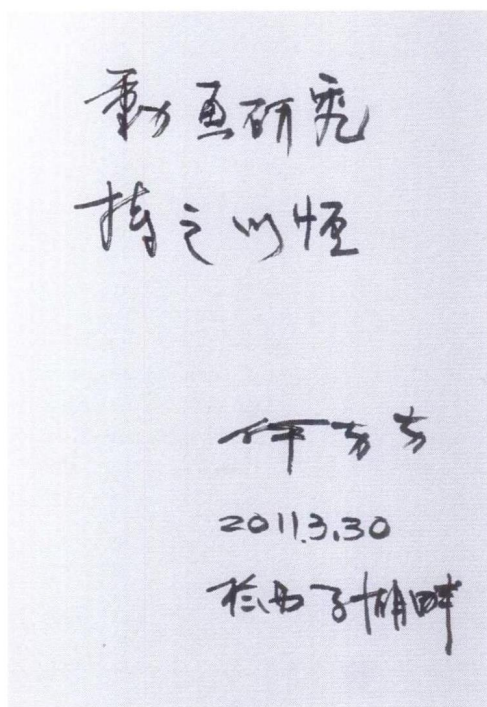 動画研究
持之以恒
2011.3.30
於西子湖畔